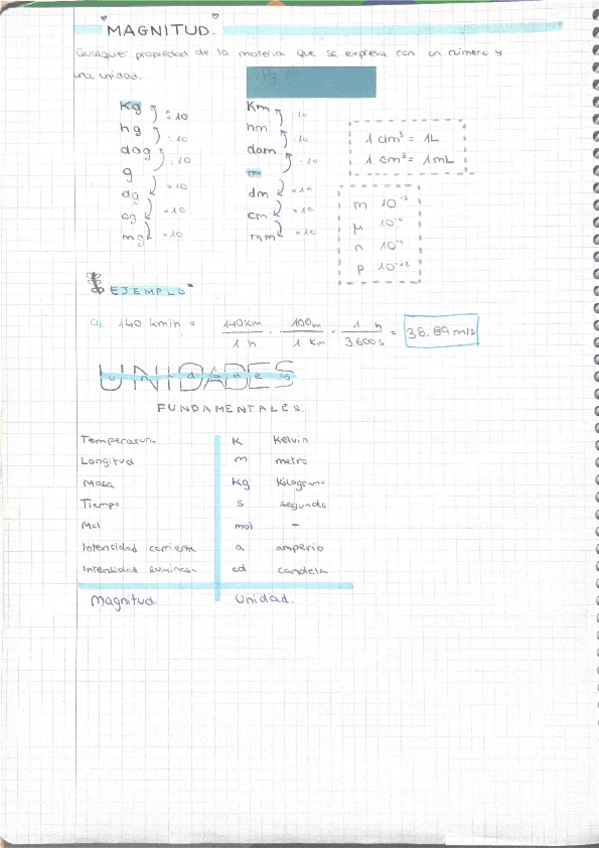 MAGNITUD.
Cualquier propiedad de la materia que se expresa con un número y
una unidad.
Kg Km
: 10 : 10
hg hm
: 10 : 10
dag dam
: 10 : 10
g m
× 10 × 10
dg dm
× 10 × 10
cg cm
× 10 × 10
mg mm
1 dm³ = 1L
1 cm³ = 1mL
m 10⁻³
μ 10⁻⁶
n 10⁻⁹
p 10⁻¹²
EJEMPLO
a). 140 km/h = 140km / 1 h · 100m / 1 km · 1 h / 3600s = 38.89 m/s
UNIDADES
unidades
FUNDAMENTALES.
Temperatura K Kelvin
Longitud m metro
Masa kg Kilogramo
Tiempo s segundo
Mol mol -
Intensidad corriente a amperio
Intensidad luminosa cd candela
Magnitud. Unidad.